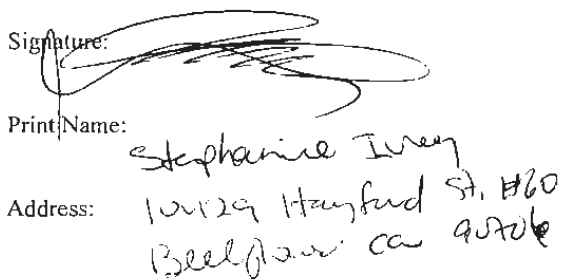 Signature:
Print Name:
Stephanie Ivey
Address: Hayford St. #60
Bellflower ca 90706